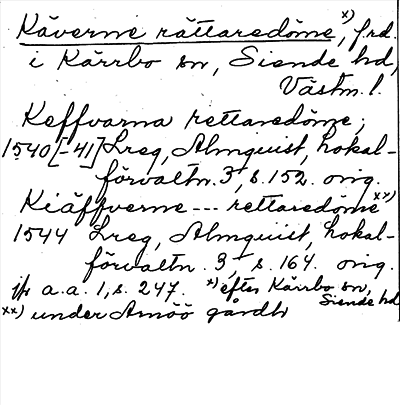 Käverne rättaredöme, x) frd.
i Kärrbo sn, Siende hd,
Västm. l.
Keffvarna rettaredöme,
1540[-41] Lreg, Almquist, Lokal-
förvaltn. 3, s. 152. orig.
Kiäffverne --- rettaredöme xx)
1544 Lreg, Almquist, Lokal-
förvaltn. 3, s. 164. orig.
jfr a.a. 1, s. 247. x) efter Kärrbo sn,
Siende hd
xx) under Amöö gårdh